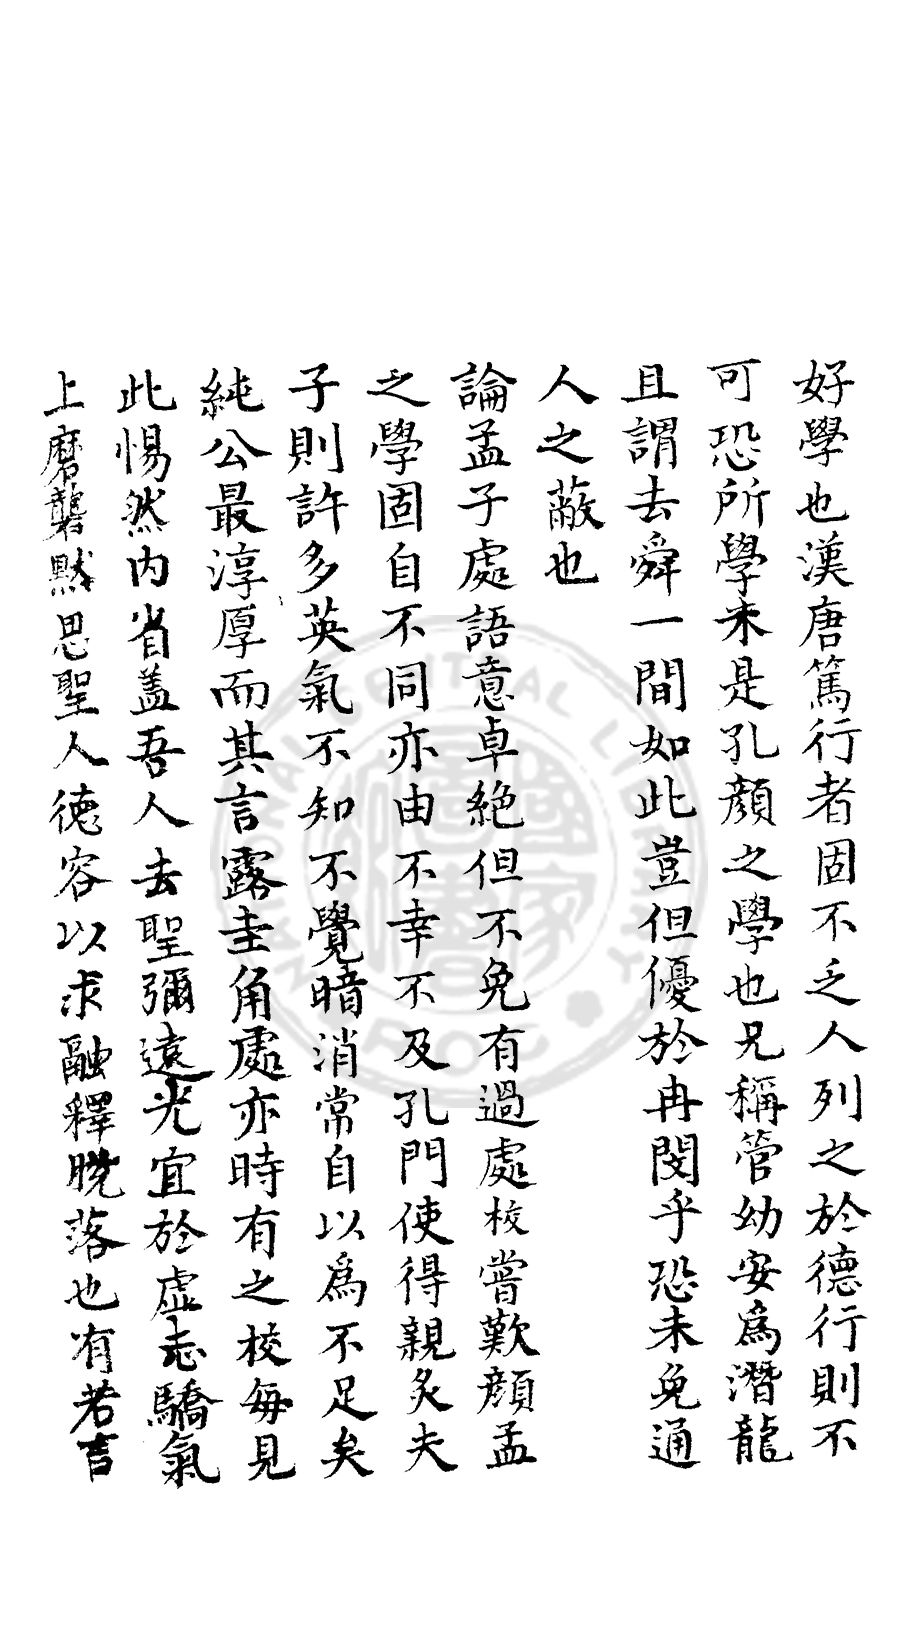 好學也漢唐篤行者固不乏人列之於德行則不
可恐所學未是孔顏之學也兄稱管幼安爲潛龍
且謂去舜一間如此豈但優於冉閔乎恐未免通
人之蔽也
論孟子處語意卓絶但不免有過處校嘗歎顏孟
之學固自不同亦由不幸不及孔門使得親炙夫
子則許多英氣不知不覺暗消常自以爲不足矣
純公最淳厚而其言露圭角處亦時有之校每見
此惕然内省盖吾人去聖彌遠尤宜於虛志驕氣
上磨礱默思聖人德容以求融釋脫落也有若言